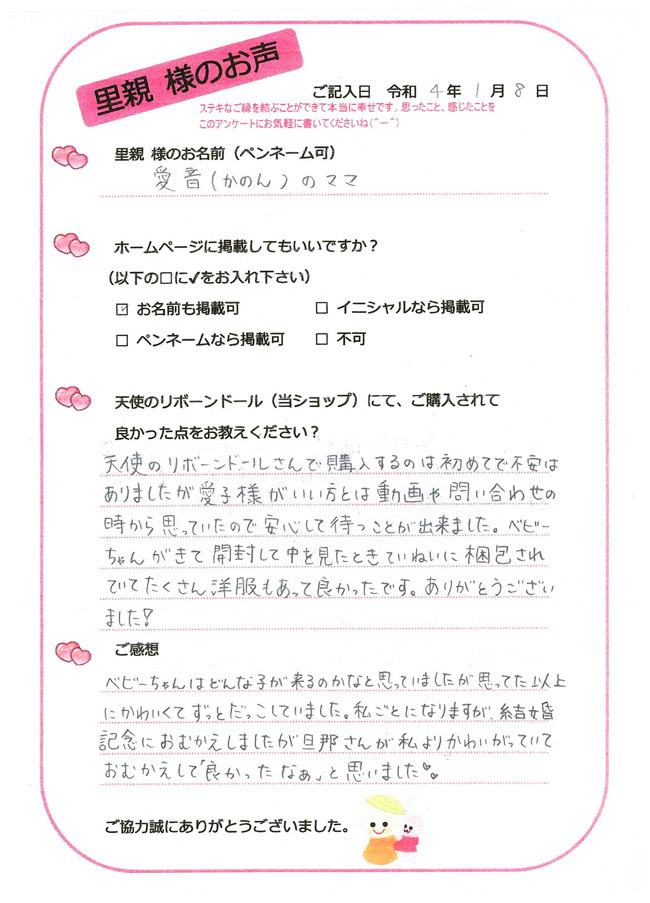 里親 様のお声
ご記入日 令和 4年 1月 8日
ステキなご縁を結ぶことができて本当に幸せです。思ったこと、感じたことを
このアンケートにお気軽に書いてくださいね(^ー^)
里親 様のお名前（ペンネーム可）
愛音(かのん)のママ
ホームページに掲載してもいいですか？
（以下の□に✓をお入れ下さい）
☑ お名前も掲載可 □ イニシャルなら掲載可
□ ペンネームなら掲載可 □ 不可
天使のリボーンドール（当ショップ）にて、ご購入されて
良かった点をお教えください？
天使のリボーンドールさんで購入するのは初めてで不安は
ありましたが愛子様がいい方とは動画や問い合わせの
時から思っていたので安心して待つことが出来ました。ベビー
ちゃんがきて開封して中を見たときていねいに梱包され
ていてたくさん洋服もあって良かったです。ありがとうござい
ました!
ご感想
ベビーちゃんはどんな子が来るのかなと思っていましたが思ってた以上
にかわいくてずっとだっこしていました。私ごとになりますが、結婚
記念におむかえしましたが旦那さんが私よりかわいがっていて
おむかえして「良かったなぁ」と思いました♡♡
ご協力誠にありがとうございました。